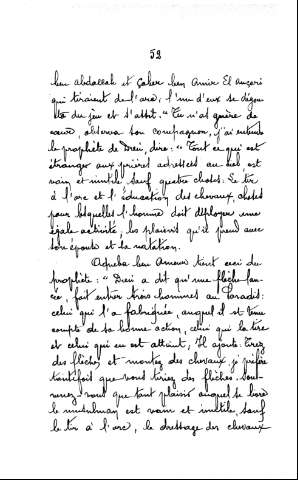 52
ben abdallah et Gaber ben Omir El ançari
qui tiraient de l'arc, l'un d'eux se dégou-
ta du jeu et s'assit. "Tu n'as guère de
cœur, observa son compagnon, j'ai entendu
le prophète de Dieu, dire: "Tout ce qui est
étranger aux prières adressées au ciel est
vain et inutile sauf quatre choses: Le tir
à l'arc et l'éducation des chevaux, choses
pour lesquelles l'homme doit déployer une
égale activité, les plaisirs qu'il prend avec
son épouse et la natation.
Acheba ben Ameur tient ceci du
prophète: "Dieu a dit qu'une flèche lan-
cée, fait entrer trois hommes au Paradis:
celui qui l'a fabriquée, auquel il est tenu
compte de sa bonne action, celui qui la tire
et celui qui en est atteint, Il ajoute: Tirez
des flèches et montez des chevaux, je préfère
toutefois que vous tiriez des flèches. Souve-
nez-vous que tout plaisir auquel se livre
le musulman est vain et inutile, sauf
le tir à l'arc, le dressage des chevaux